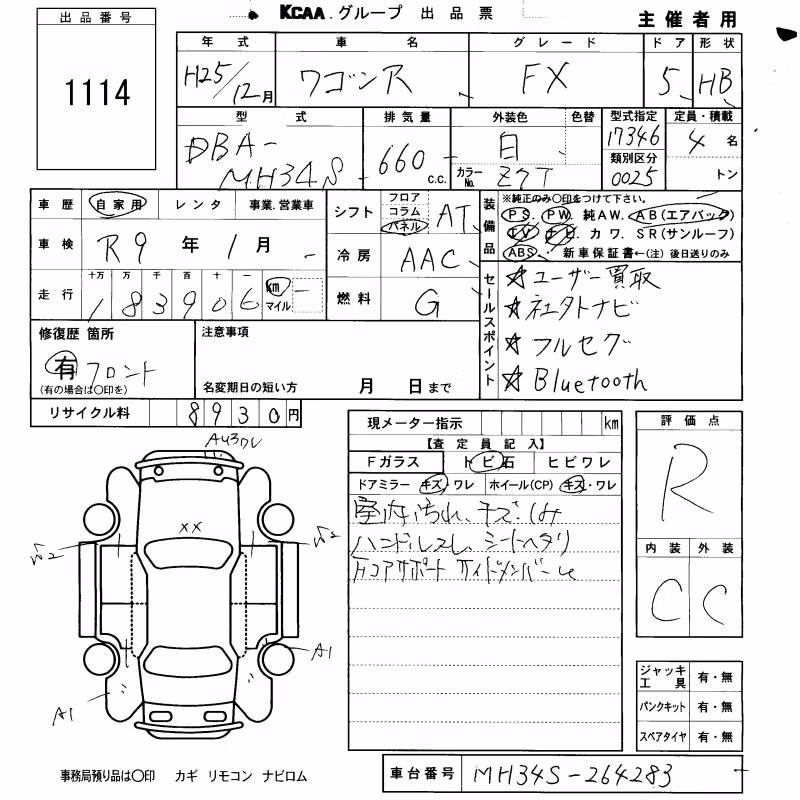 KCAA.グループ 出品票
主催者用
出品番号
1114
年式 車名 グレード ドア 形状
H25/12月 ワゴンR FX 5 HB
型式 排気量 外装色 色替 型式指定 定員・積載
DBA-MH34S 660c.c. 白 17346 4名
カラーNo. Z7T 類別区分 0025 トン
車歴 自家用 レンタ 事業.営業車
シフト フロア コラム パネル AT
装備品 ※純正のみ○印をつけて下さい。
PS. PW. 純AW. AB(エアバック)
カワ. SR(サンルーフ)
ABS. 新車保証書←(注)後日送りのみ
車検 R9年1月
冷房 AAC
走行 十万 万 千 百 十 一
183906 km マイル
燃料 G
セールスポイント
☆ユーザー買取
☆社外ナビ
☆フルセグ
☆Bluetooth
修復歴 箇所
有 フロント
(有の場合は○印を)
注意事項
名変期日の短い方 月 日まで
リサイクル料 8930円
現メーター指示 km
【査定員記入】
Fガラス トビ石 ヒビワレ
ドアミラー キズ.ワレ ホイール(CP) キズ・ワレ
室内汚れ、キズ.しみ
ハンドルスレ、シートヘタリ
コアサポート サイドメンバー
評価点
R
内装 外装
C C
XX
A1
A1
ジャッキ工具 有・無
パンクキット 有・無
スペアタイヤ 有・無
事務局預り品は○印 カギ リモコン ナビロム
車台番号 MH34S-264283